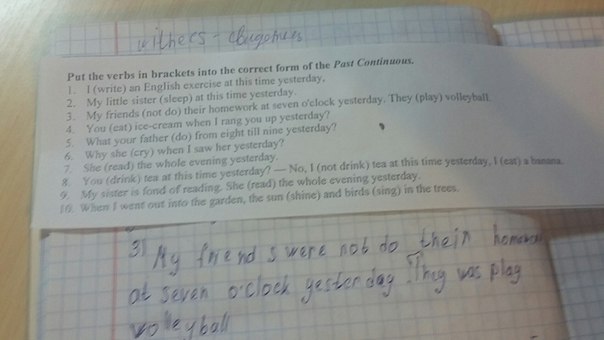 witnees - свидетель
Put the verbs in brackets into the correct form of the Past Continuous.
1. I (write) an English exercise at this time yesterday.
2. My little sister (sleep) at this time yesterday.
3. My friends (not do) their homework at seven o'clock yesterday. They (play) volleyball.
4. You (eat) ice-cream when I rang you up yesterday?
5. What your father (do) from eight till nine yesterday?
6. Why she (cry) when I saw her yesterday?
7. She (read) the whole evening yesterday.
8. You (drink) tea at this time yesterday? — No, I (not drink) tea at this time yesterday, I (eat) a banana.
9. My sister is fond of reading. She (read) the whole evening yesterday.
10. When I went out into the garden, the sun (shine) and birds (sing) in the trees.
3) My friend s were not do their homewo
at seven o'clock yesterday. They was play
volleyball